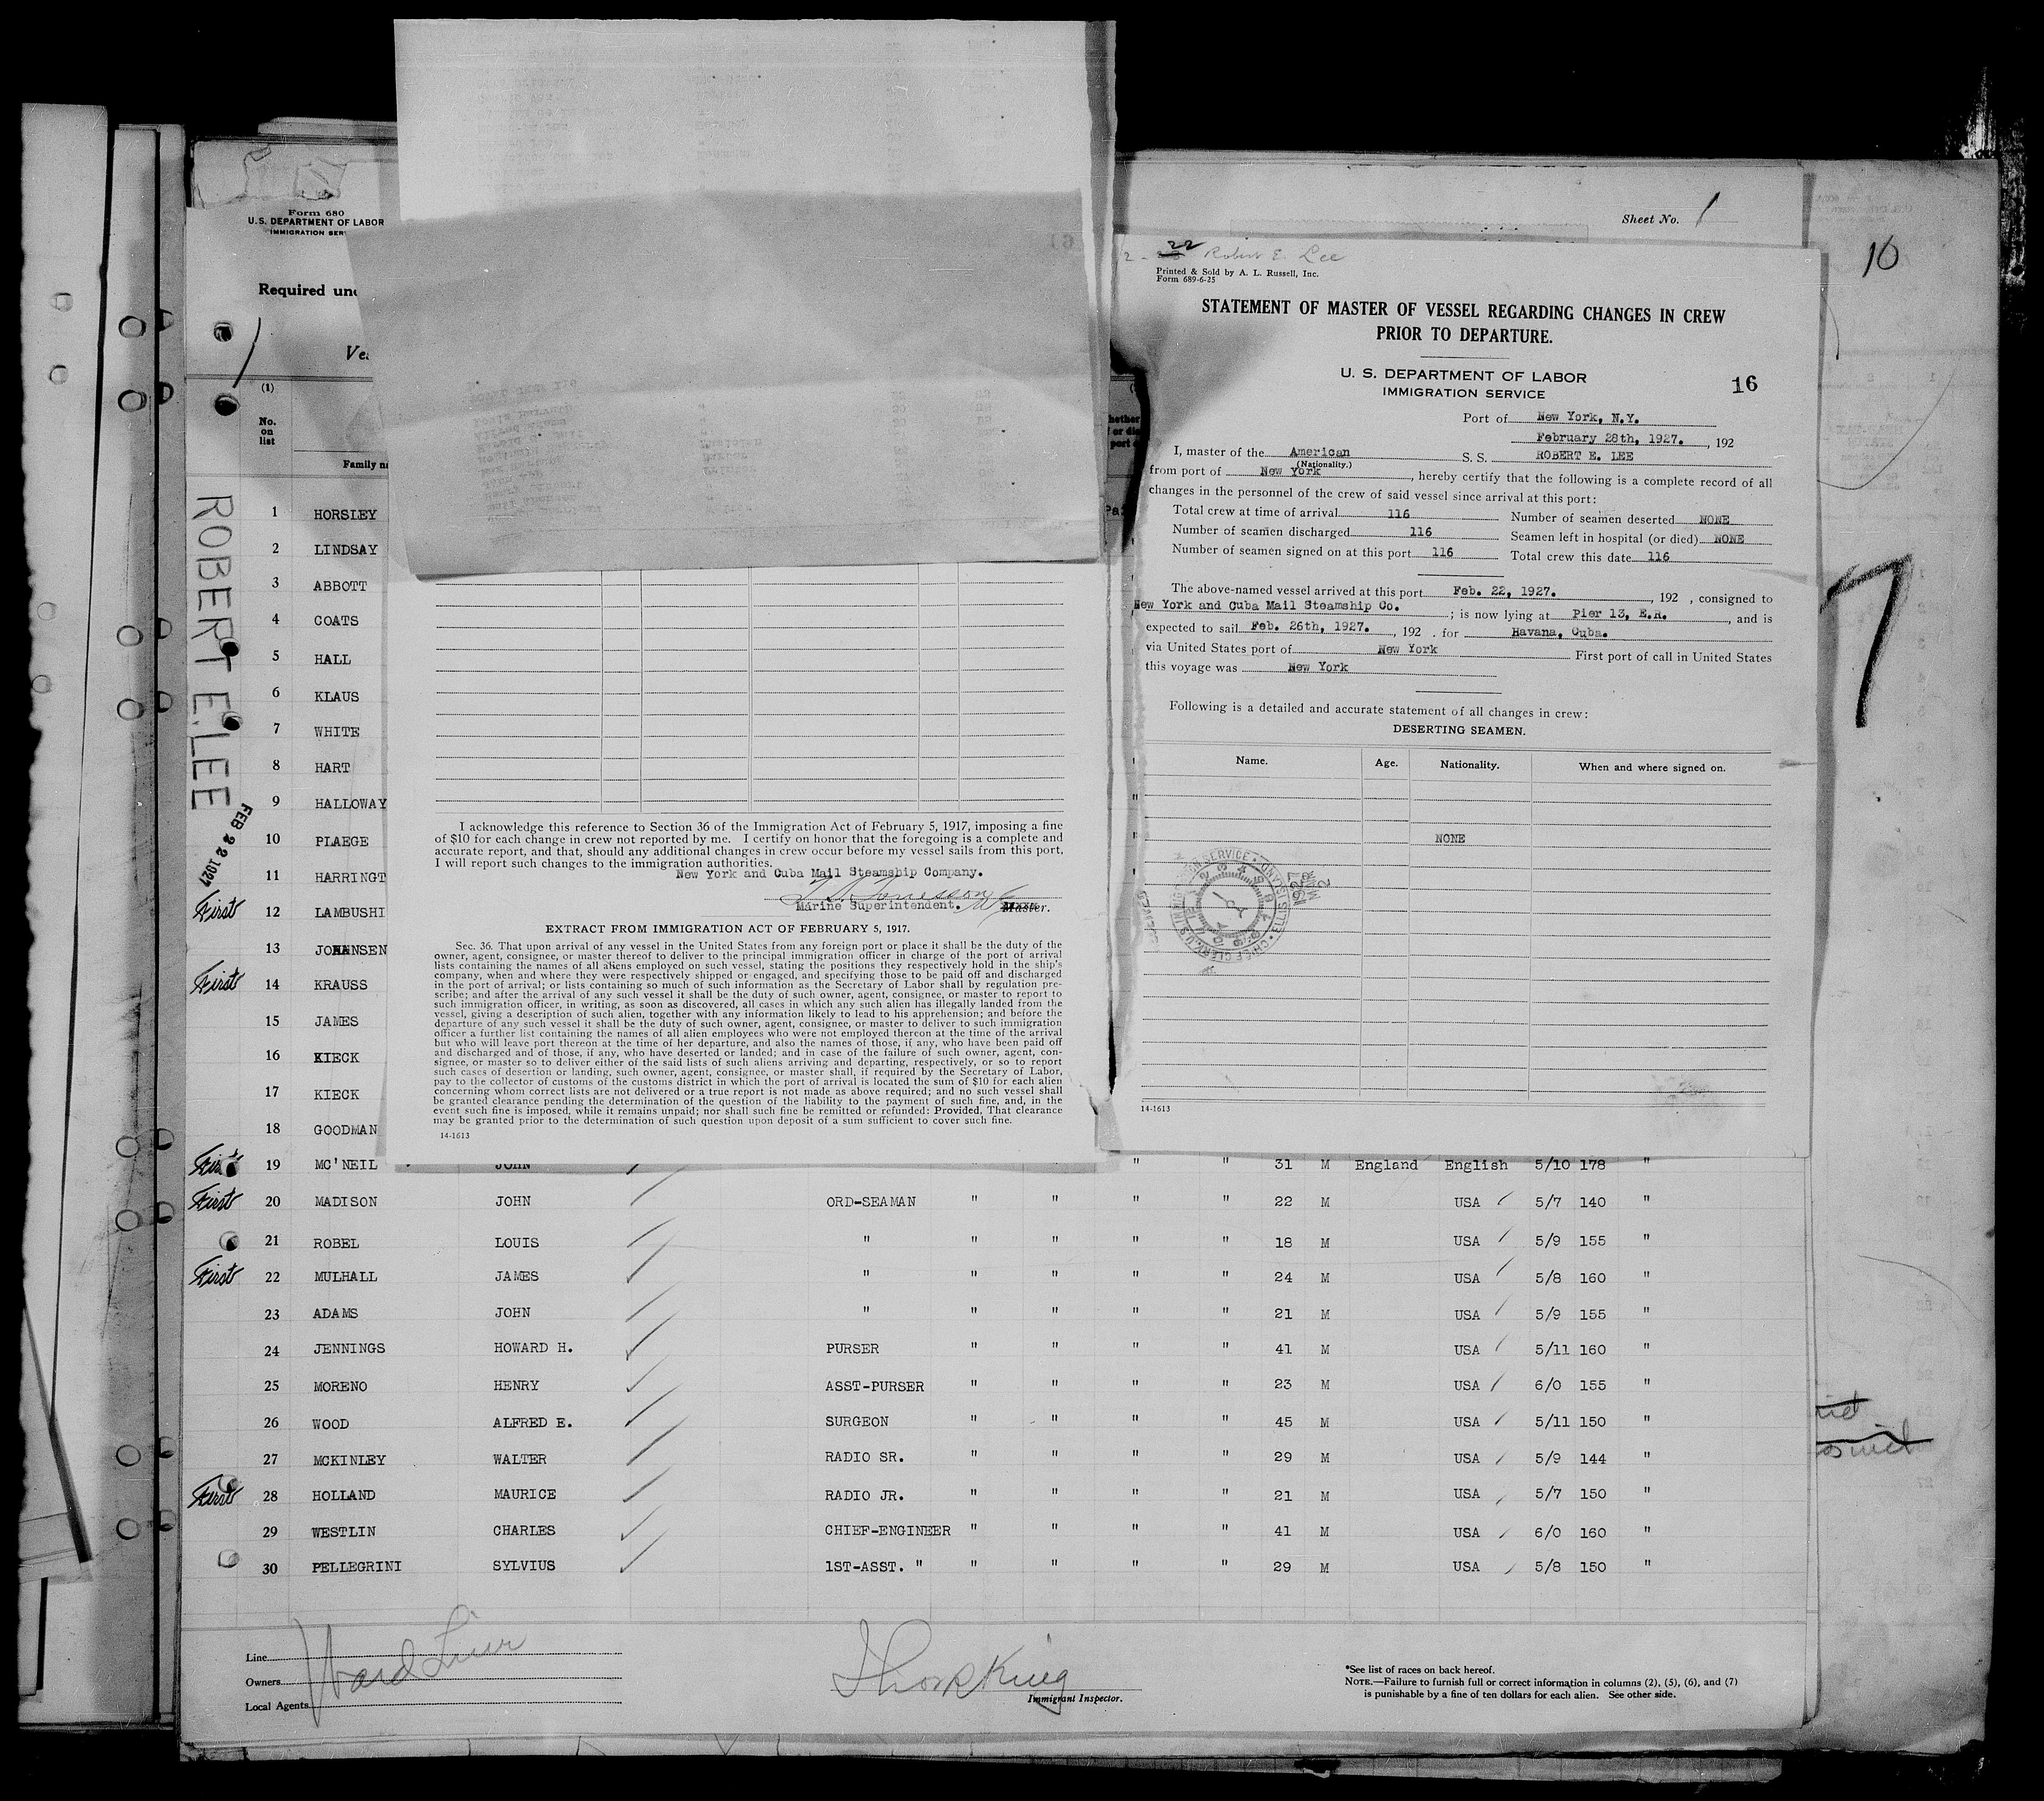 Sheet No. 1
10
Form 680
U.S. DEPARTMENT OF LABOR
IMMIGRATION SER
Required und
Ve
(1)
No. on list
Family na
ROBERT E. LEE
FEB 22 1927
1 HORSLEY
2 LINDSAY
3 ABBOTT
4 COATS
5 HALL
6 KLAUS
7 WHITE
8 HART
9 HALLOWAY
10 PLAEGE
11 HARRINGT
First 12 LAMBUSHI
13 JOHANSEN
First 14 KRAUSS
15 JAMES
16 KIECK
17 KIECK
18 GOODMAN
First 19 MC'NEIL JOHN " " " " 31 M England English 5/10 178 "
First 20 MADISON JOHN ORD-SEAMAN " " " " 22 M USA 5/7 140 "
21 ROBEL LOUIS " " " " " 18 M USA 5/9 155 "
First 22 MULHALL JAMES " " " " " 24 M USA 5/8 160 "
23 ADAMS JOHN " " " " " 21 M USA 5/9 155 "
24 JENNINGS HOWARD H. PURSER " " " " 41 M USA 5/11 160 "
25 MORENO HENRY ASST-PURSER " " " " 23 M USA 6/0 155 "
26 WOOD ALFRED E. SURGEON " " " " 45 M USA 5/11 150 "
27 MCKINLEY WALTER RADIO SR. " " " " 29 M USA 5/9 144 "
First 28 HOLLAND MAURICE RADIO JR. " " " " 21 M USA 5/7 150 "
29 WESTLIN CHARLES CHIEF-ENGINEER " " " " 41 M USA 6/0 160 "
30 PELLEGRINI SYLVIUS 1ST-ASST. " " " " " 29 M USA 5/8 150 "
Line
Owners Ward Line
Local Agents
Immigrant Inspector.
*See list of races on back hereof.
NOTE.—Failure to furnish full or correct information in columns (2), (5), (6), and (7)
is punishable by a fine of ten dollars for each alien. See other side.
I acknowledge this reference to Section 36 of the Immigration Act of February 5, 1917, imposing a fine
of $10 for each change in crew not reported by me. I certify on honor that the foregoing is a complete and
accurate report, and that, should any additional changes in crew occur before my vessel sails from this port,
I will report such changes to the immigration authorities.
New York and Cuba Mail Steamship Company.
Marine Superintendent. Master.
EXTRACT FROM IMMIGRATION ACT OF FEBRUARY 5, 1917.
Sec. 36. That upon arrival of any vessel in the United States from any foreign port or place it shall be the duty of the
owner, agent, consignee, or master thereof to deliver to the principal immigration officer in charge of the port of arrival
lists containing the names of all aliens employed on such vessel, stating the positions they respectively hold in the ship's
company, when and where they were respectively shipped or engaged, and specifying those to be paid off and discharged
in the port of arrival; or lists containing so much of such information as the Secretary of Labor shall by regulation pre-
scribe; and after the arrival of any such vessel it shall be the duty of such owner, agent, consignee, or master to report to
such immigration officer, in writing, as soon as discovered, all cases in which any such alien has illegally landed from the
vessel, giving a description of such alien, together with any information likely to lead to his apprehension; and before the
departure of any such vessel it shall be the duty of such owner, agent, consignee, or master to deliver to such immigration
officer a further list containing the names of all alien employees who were not employed thereon at the time of the arrival
but who will leave port thereon at the time of her departure, and also the names of those, if any, who have been paid off
and discharged and of those, if any, who have deserted or landed; and in case of the failure of such owner, agent, con-
signee, or master so to deliver either of the said lists of such aliens arriving and departing, respectively, or so to report
such cases of desertion or landing, such owner, agent, consignee, or master shall, if required by the Secretary of Labor,
pay to the collector of customs of the customs district in which the port of arrival is located the sum of $10 for each alien
concerning whom correct lists are not delivered or a true report is not made as above required; and no such vessel shall
be granted clearance pending the determination of the question of the liability to the payment of such fine, and, in the
event such fine is imposed, while it remains unpaid; nor shall such fine be remitted or refunded: Provided, That clearance
may be granted prior to the determination of such question upon deposit of a sum sufficient to cover such fine.
14-1613
22 Robert E. Lee
Printed & Sold by A. L. Russell, Inc.
Form 689-6-25
STATEMENT OF MASTER OF VESSEL REGARDING CHANGES IN CREW
PRIOR TO DEPARTURE.
U. S. DEPARTMENT OF LABOR
IMMIGRATION SERVICE
16
Port of New York, N.Y.
February 28th, 1927. , 192
I, master of the American S. S. ROBERT E. LEE
(Nationality.)
from port of New York, hereby certify that the following is a complete record of all
changes in the personnel of the crew of said vessel since arrival at this port:
Total crew at time of arrival 116 Number of seamen deserted NONE
Number of seamen discharged 116 Seamen left in hospital (or died) NONE
Number of seamen signed on at this port 116 Total crew this date 116
The above-named vessel arrived at this port Feb. 22, 1927. , 192 , consigned to
New York and Cuba Mail Steamship Co. ; is now lying at Pier 13, E.R. , and is
expected to sail Feb. 26th, 1927. , 192 . for Havana, Cuba.
via United States port of New York First port of call in United States
this voyage was New York
Following is a detailed and accurate statement of all changes in crew:
DESERTING SEAMEN.
Name. Age. Nationality. When and where signed on.
NONE
14-1613
7